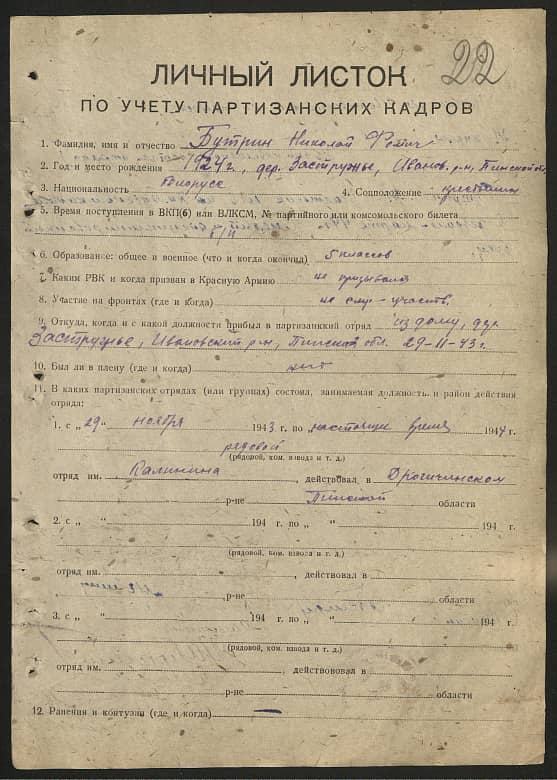 22
ЛИЧНЫЙ ЛИСТОК
ПО УЧЕТУ ПАРТИЗАНСКИХ КАДРОВ
1. Фамилия, имя и отчество Бутрин Николай
2. Год и место рождения 1924 г., дер. Застружье, Иванов. р-н, Пинской об.
3. Национальность белорусс 4. Соцположение крестьянин
5. Время поступления в ВКП(б) или ВЛКСМ, № партийного или комсомольского билета
б/п
6. Образование: общее и военное (что и когда окончил) 5 классов
7. Каким РВК и когда призван в Красную Армию не призывался
8. Участие на фронтах (где и когда) не участв.
9. Откуда, когда и с какой должности прибыл в партизанкий отряд из дому, дер.
Застружье, Ивановский р-н, Пинской обл. 29-11-43 г.
10. Был ли в плену (где и когда) нет
11. В каких партизанских отрядах (или группах) состоял, занимаемая должность и район действия
отряда:
1. с „29“ ноября 1943 г. по „настоящее время 1944 г.
рядовой
(рядовой, ком. взвода и т. д.)
отряд им. Калинина, действовал в Дрогичинском
р-не Пинской области
2. с „ “ 194 г. по „ “ 194 г.
(рядовой, ком. взвода и т. д.)
отряд им. , действовал в
р-не области
3. с „ “ 194 г. по „ “ 194 г.
(рядовой, ком. взвода и т. д.)
отряд им. , действововал в
р-не области
12. Ранения и контузии (где и когда) —